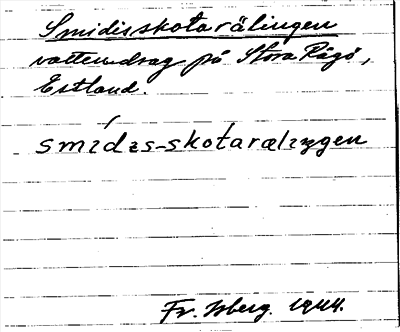 Smidisskotarälingen
vattendrag på Stora Rågö,
Estland.
smídɪs-skot́aræliŋgen
Fr. Isberg. 1944.